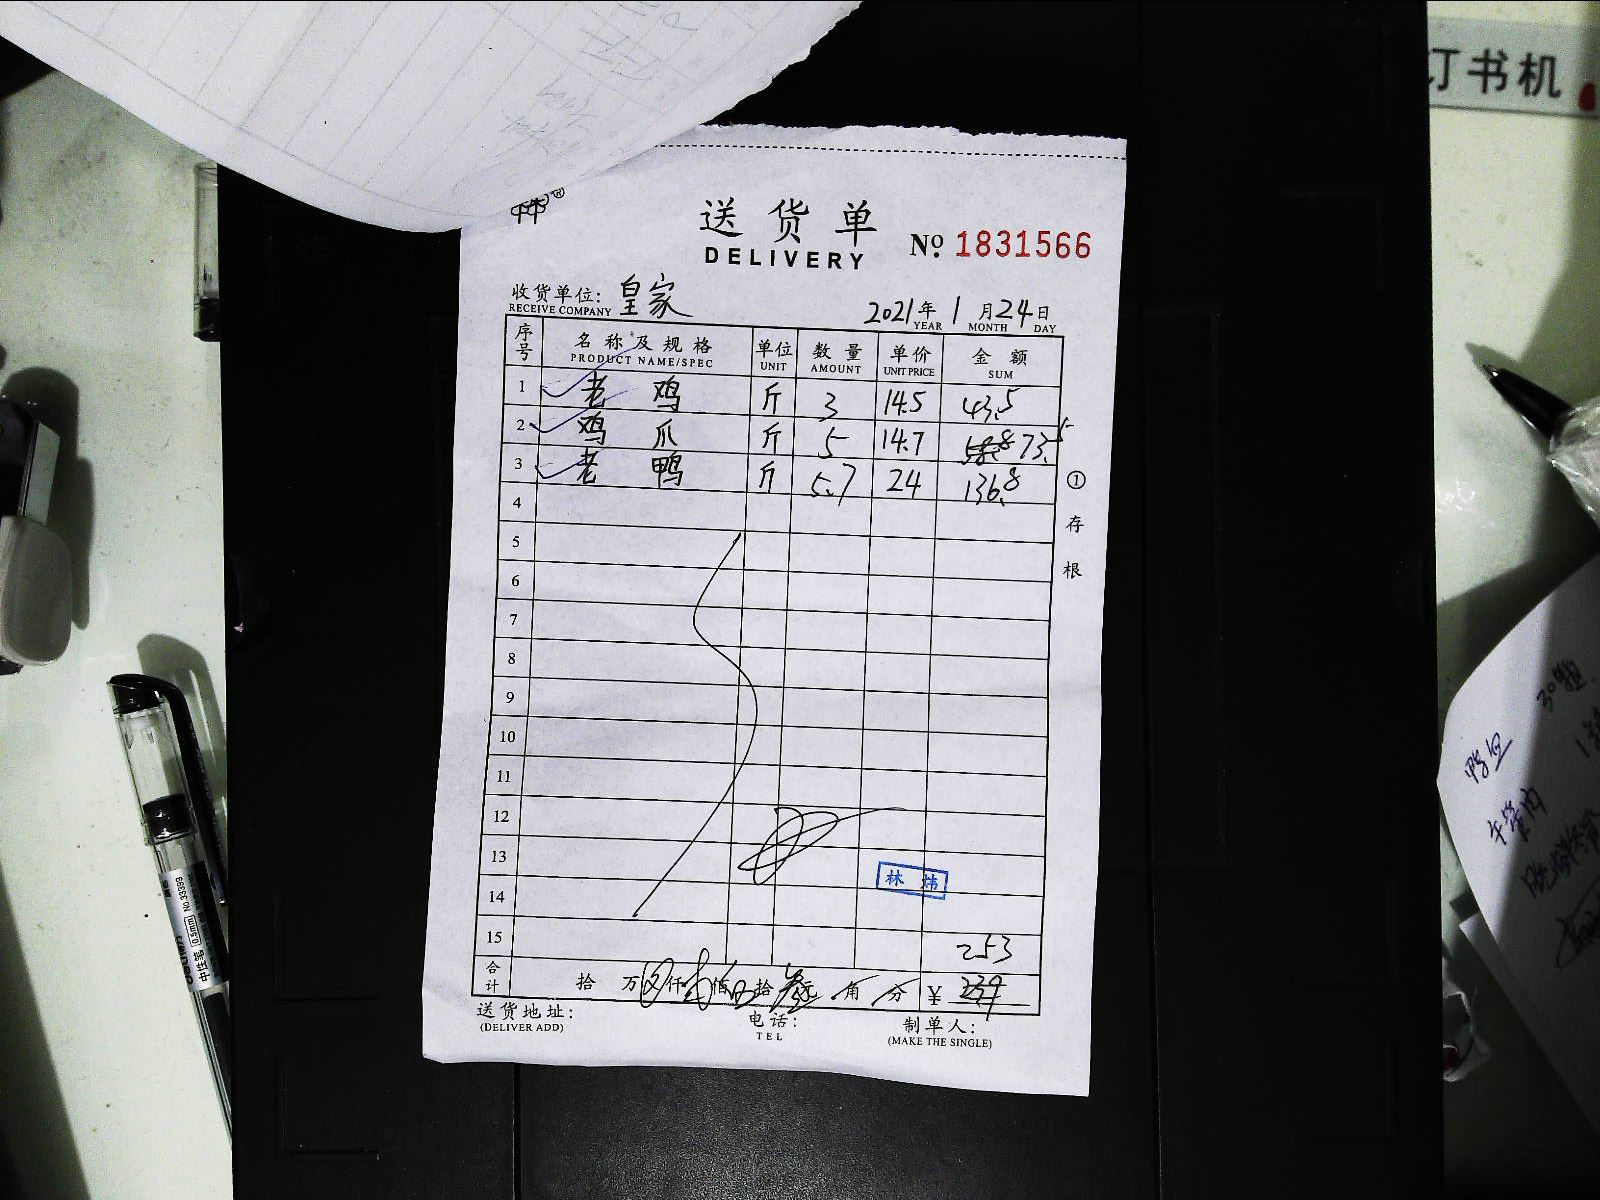 订书机
送货单
DELIVERY
No 1831566
收货单位: 皇家
RECEIVE COMPANY
2021年 1月24日
YEAR MONTH DAY
序号 名称及规格 单位 数量 单价 金额
PRODUCT NAME/SPEC UNIT AMOUNT UNIT PRICE SUM
1 老鸡 斤 3 14.5 43.5
2 鸡爪 斤 5 14.7 73.5
3 老鸭 斤 5.7 24 136.8
4
5
6
7
8
9
10
11
12
13
林炜
14
15 253
合计 拾 万 仟 佰 拾 元 角 分 ¥ 239
送货地址: 电话: 制单人:
(DELIVER ADD) TEL (MAKE THE SINGLE)
① 存根
中性笔 0.5mm No.33399
30
牛腱肉